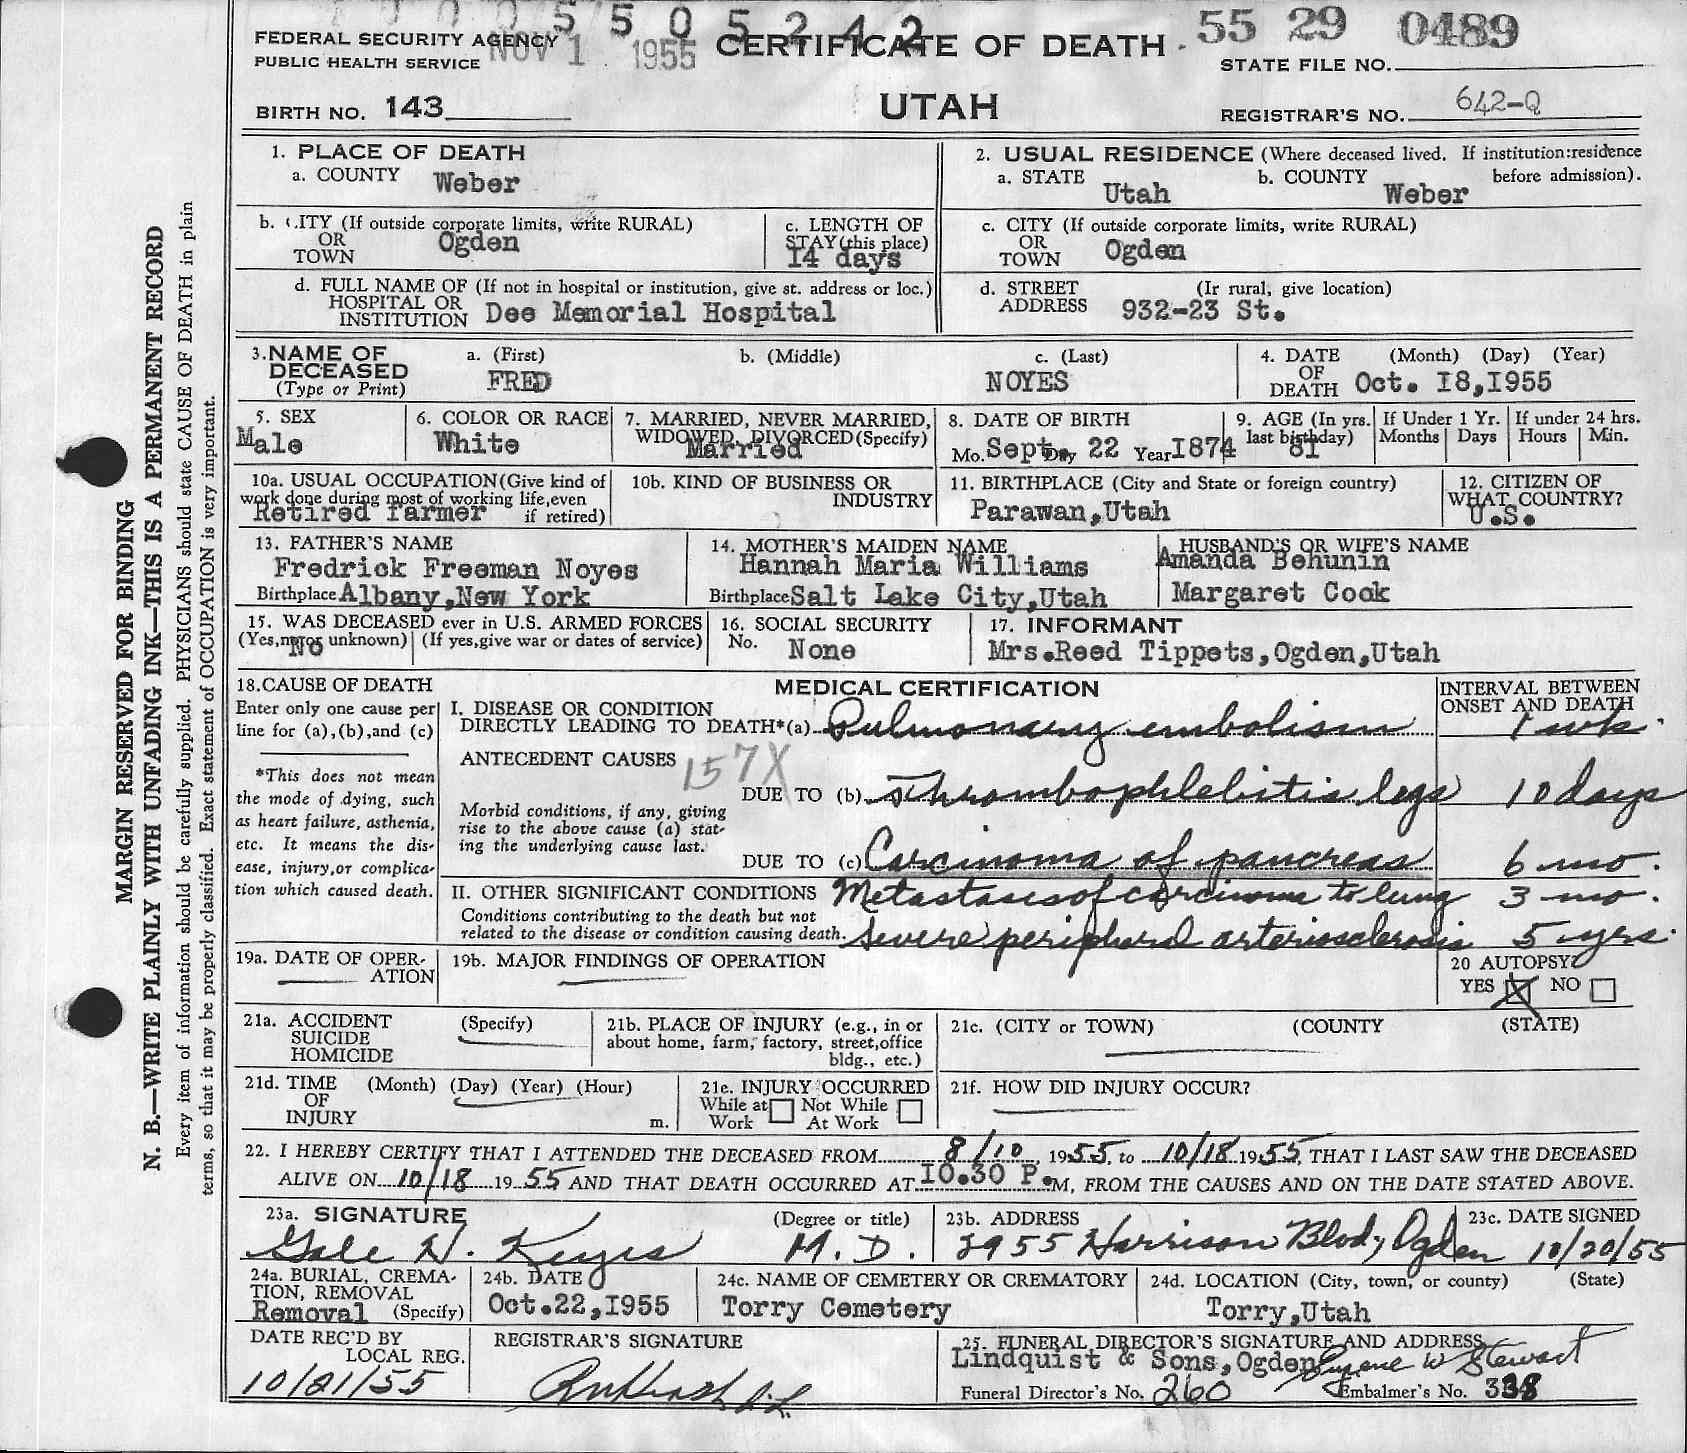 0 0 0 5 5 0 5 2 4 2
55 29 0489
FEDERAL SECURITY AGENCY
PUBLIC HEALTH SERVICE
NOV 1 1955
CERTIFICATE OF DEATH
STATE FILE NO.
BIRTH NO. 143
UTAH
REGISTRAR'S NO. 642-Q
1. PLACE OF DEATH
a. COUNTY Weber
2. USUAL RESIDENCE (Where deceased lived. If institution:residence before admission).
a. STATE Utah
b. COUNTY Weber
b. CITY (If outside corporate limits, write RURAL)
OR
TOWN Ogden
c. LENGTH OF
STAY (this place)
14 days
c. CITY (If outside corporate limits, write RURAL)
OR
TOWN Ogden
d. FULL NAME OF (If not in hospital or institution, give st. address or loc.)
HOSPITAL OR
INSTITUTION Dee Memorial Hospital
d. STREET (Ir rural, give location)
ADDRESS 932-23 St.
3. NAME OF
DECEASED
(Type or Print)
a. (First) FRED
b. (Middle)
c. (Last) NOYES
4. DATE (Month) (Day) (Year)
OF
DEATH Oct. I8,I955
5. SEX
Male
6. COLOR OR RACE
White
7. MARRIED, NEVER MARRIED,
WIDOWED, DIVORCED (Specify)
Married
8. DATE OF BIRTH
Mo. Sept. Day 22 Year I874
9. AGE (In yrs.
last birthday)
81
If Under 1 Yr.
Months Days
If under 24 hrs.
Hours Min.
10a. USUAL OCCUPATION (Give kind of
work done during most of working life,even
if retired)
Retired farmer
10b. KIND OF BUSINESS OR
INDUSTRY
11. BIRTHPLACE (City and State or foreign country)
Parawan,Utah
12. CITIZEN OF
WHAT COUNTRY?
U.S.
13. FATHER'S NAME
Fredrick Freeman Noyes
Birthplace Albany,New York
14. MOTHER'S MAIDEN NAME
Hannah Maria Williams
Birthplace Salt Lake City,Utah
HUSBAND'S OR WIFE'S NAME
Amanda Behunin
Margaret Cook
15. WAS DECEASED ever in U.S. ARMED FORCES
(Yes,no,or unknown) (If yes,give war or dates of service)
No
16. SOCIAL SECURITY
No. None
17. INFORMANT
Mrs.Reed Tippets,Ogden,Utah
18. CAUSE OF DEATH
Enter only one cause per
line for (a),(b),and (c)
*This does not mean
the mode of dying, such
as heart failure, asthenia,
etc. It means the dis-
ease, injury,or complica-
tion which caused death.
MEDICAL CERTIFICATION
INTERVAL BETWEEN
ONSET AND DEATH
I. DISEASE OR CONDITION
DIRECTLY LEADING TO DEATH*(a) Pulmonary embolism 1 wk.
ANTECEDENT CAUSES 157X
Morbid conditions, if any, giving
rise to the above cause (a) stat-
ing the underlying cause last.
DUE TO (b) Thrombophlebitis legs 10 days
DUE TO (c) Carcinoma of pancreas 6 mo.
II. OTHER SIGNIFICANT CONDITIONS Metastases of carcinoma to lung 3 mo.
Conditions contributing to the death but not
related to the disease or condition causing death. Severe peripheral arteriosclerosis 5 yrs.
19a. DATE OF OPER-
ATION
19b. MAJOR FINDINGS OF OPERATION
20 AUTOPSY?
YES X NO
21a. ACCIDENT
SUICIDE
HOMICIDE
(Specify)
21b. PLACE OF INJURY (e.g., in or
about home, farm, factory, street,office
bldg., etc.)
21c. (CITY or TOWN) (COUNTY (STATE)
21d. TIME (Month) (Day) (Year) (Hour)
OF
INJURY m.
21e. INJURY OCCURRED
While at Work
Not While At Work
21f. HOW DID INJURY OCCUR?
22. I HEREBY CERTIFY THAT I ATTENDED THE DECEASED FROM 8/10, 1955, to 10/18 1955, THAT I LAST SAW THE DECEASED
ALIVE ON 10/18 1955 AND THAT DEATH OCCURRED AT I0.30 P.M, FROM THE CAUSES AND ON THE DATE STATED ABOVE.
23a. SIGNATURE (Degree or title)
Gale H. Keyes M.D.
23b. ADDRESS
3955 Harrison Blvd, Ogden
23c. DATE SIGNED
10/20/55
24a. BURIAL, CREMA-
TION, REMOVAL
Removal (Specify)
24b. DATE
Oct.22,I955
24c. NAME OF CEMETERY OR CREMATORY
Torry Cemetery
24d. LOCATION (City, town, or county) (State)
Torry,Utah
DATE REC'D BY
LOCAL REG.
10/21/55
REGISTRAR'S SIGNATURE
25. FUNERAL DIRECTOR'S SIGNATURE AND ADDRESS
Lindquist & Sons,Ogden Eugene W Stewart
Funeral Director's No. 260 Embalmer's No. 338
MARGIN RESERVED FOR BINDING
N. B.—WRITE PLAINLY WITH UNFADING INK—THIS IS A PERMANENT RECORD
Every item of information should be carefully supplied. PHYSICIANS should state CAUSE OF DEATH in plain
terms, so that it may be properly classified. Exact statement of OCCUPATION is very important.